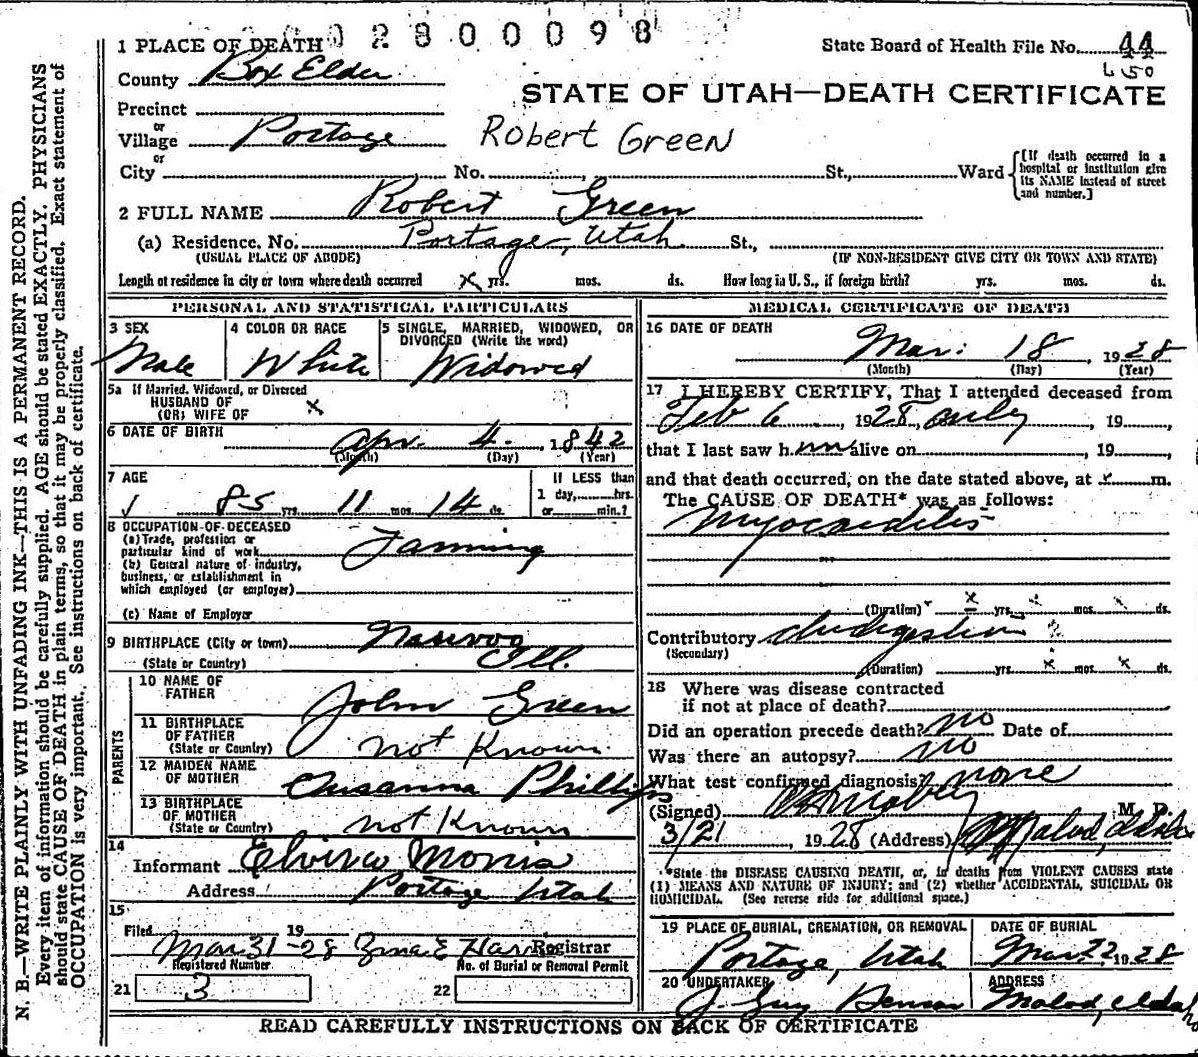 02800098
1 PLACE OF DEATH
State Board of Health File No. 44
450
County Box Elder
STATE OF UTAH—DEATH CERTIFICATE
Precinct
or
Village Portage
Robert Green
or
City No. St., Ward
[If death occurred in a hospital or institution give its NAME instead of street and number.]
2 FULL NAME Robert Green
(a) Residence. No. Portage, Utah St.,
(USUAL PLACE OF ABODE) (IF NON-RESIDENT GIVE CITY OR TOWN AND STATE)
Length of residence in city or town where death occurred x yrs. mos. ds. How long in U. S., if foreign birth? yrs. mos. ds.
PERSONAL AND STATISTICAL PARTICULARS
3 SEX
Male
4 COLOR OR RACE
White
5 SINGLE, MARRIED, WIDOWED, OR DIVORCED (Write the word)
Widowed
5a If Married, Widowed, or Divorced
HUSBAND OF
(OR) WIFE OF x
6 DATE OF BIRTH
Apr. 4. 1842
(Month) (Day) (Year)
7 AGE
85 yrs. 11 mos. 14 ds.
If LESS than
1 day, hrs.
or min.?
8 OCCUPATION OF DECEASED
(a) Trade, profession or
particular kind of work Farming
(b) General nature of industry,
business, or establishment in
which employed (or employer)
(c) Name of Employer
9 BIRTHPLACE (City or town) Nauvoo
(State or Country) Ill.
PARENTS
10 NAME OF FATHER John Green
11 BIRTHPLACE OF FATHER
(State or Country) not Known
12 MAIDEN NAME OF MOTHER Susanna Phillips
13 BIRTHPLACE OF MOTHER
(State or Country) not Known
14
Informant Elvira Morris
Address Portage Utah
15
Filed Mar 31 1928 E Harris Registrar
Registered Number No. of Burial or Removal Permit
21 3 22
MEDICAL CERTIFICATE OF DEATH
16 DATE OF DEATH
Mar. 18, 1928
(Month) (Day) (Year)
17 I HEREBY CERTIFY, That I attended deceased from
Feb 6, 1928, only, 19
that I last saw him alive on , 19
and that death occurred, on the date stated above, at x m.
The CAUSE OF DEATH* was as follows:
Myocarditis
(Duration) x yrs. mos. x ds.
Contributory Indigestion
(Secondary)
(Duration) yrs. x mos. x ds.
18 Where was disease contracted
if not at place of death?
Did an operation precede death? no Date of
Was there an autopsy? no
What test confirmed diagnosis? none
(Signed) Mabey M. D.
3/21, 1928 (Address) Malad, Idaho
*State the DISEASE CAUSING DEATH, or, in deaths from VIOLENT CAUSES state
(1) MEANS AND NATURE OF INJURY; and (2) whether ACCIDENTAL, SUICIDAL OR
HOMICIDAL. (See reverse side for additional space.)
19 PLACE OF BURIAL, CREMATION, OR REMOVAL
Portage, Utah
DATE OF BURIAL
Mar 22 1928
20 UNDERTAKER
J. Guy Benson
ADDRESS
Malad, Idaho
READ CAREFULLY INSTRUCTIONS ON BACK OF CERTIFICATE
N. B.—WRITE PLAINLY WITH UNFADING INK—THIS IS A PERMANENT RECORD.
Every item of information should be carefully supplied. AGE should be stated EXACTLY. PHYSICIANS
should state CAUSE OF DEATH in plain terms, so that it may be properly classified. Exact statement of
OCCUPATION is very important. See instructions on back of certificate.